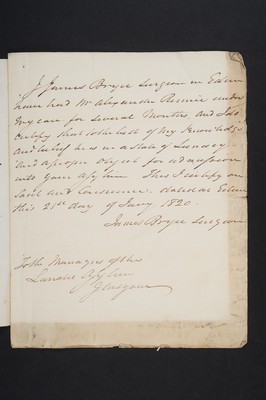 I James Bryce Surgeon in Edinr
have had Mr Alexander Rennie under
my care for several Months, and I do
certify that to the best of my Knowledge
and belief he is in a state of Lunacy
and a proper object for admission
into your Asylum. This I certify on
Saul and Conscience. dated at Edinr
this 21st day of Jany 1820.
James Bryce Surgeon
To the Managers of the
Lunatic Asylum
Glasgow